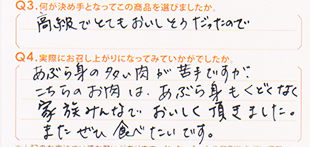 Q3.何が決め手となってこの商品を選びましたか。
高級でとてもおいしそうだったので
Q4.実際にお召し上がりになってみていかがでしたか。
あぶら身の多い肉が苦手ですが、
こちらのお肉は、あぶら身もくどくなく
家族みんなでおいしく頂きました。
またぜひ食べたいです。